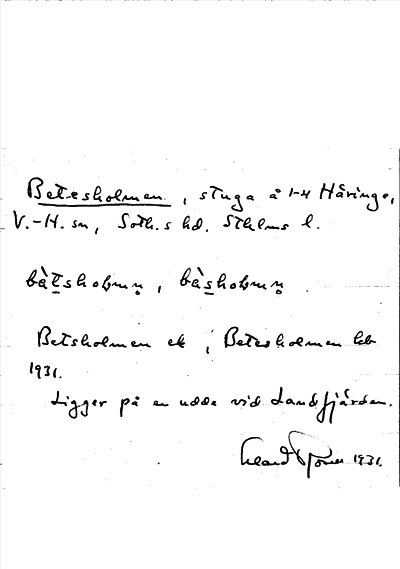 Betesholmen, stuga å 1-4 Häringe,
V.-H. sn, Soth.s hd. Sthlms l.
bètsholmn̥, bèsholmn̥
Betsholmen ek, Betesholmen hb
1931.
Ligger på en udde vid Landfjärden.
1931.